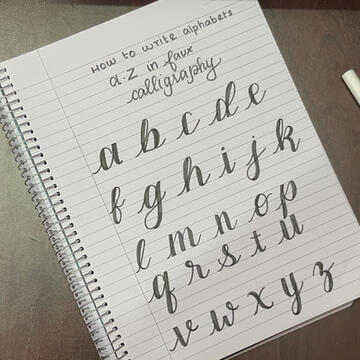 How to write alphabets
a-z in faux
calligraphy
a b c d e
f g h i j k
l m n o p
q r s t u
v w x y z